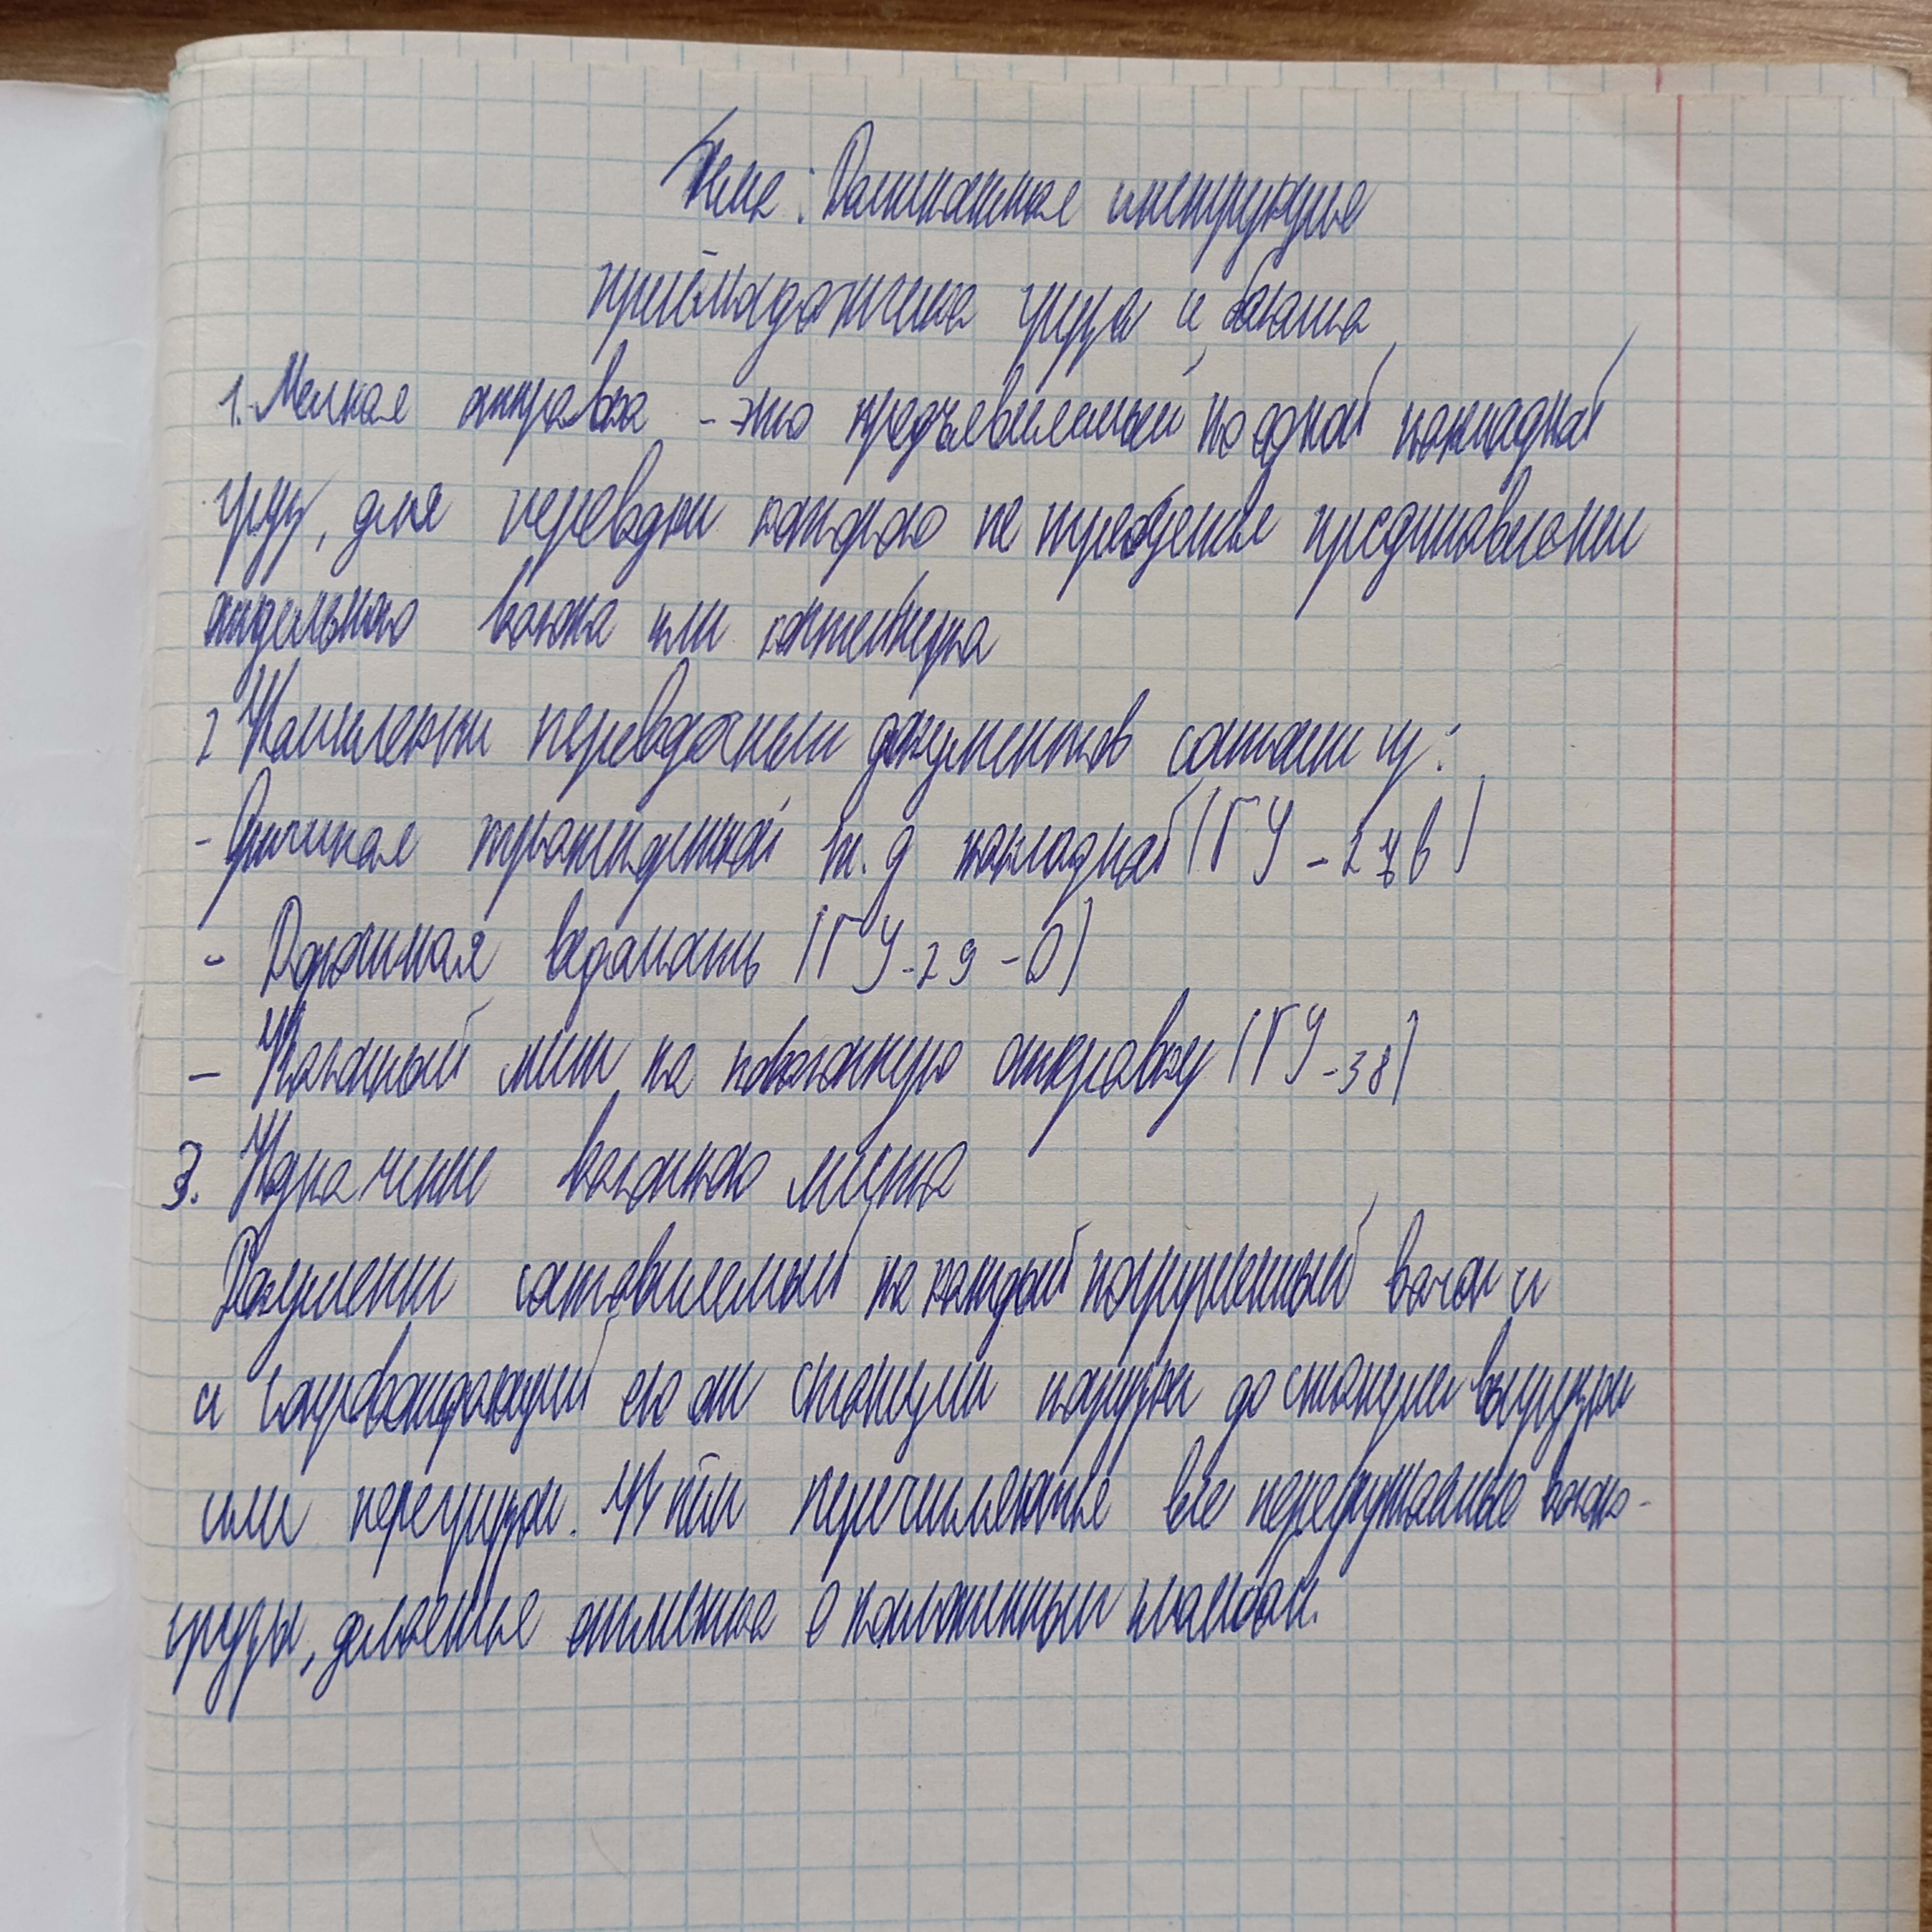 Тема: Должностная инструкция
приёмосдатчика груза и багажа
1. Мелкая отправка - это предъявляемый по одной накладной
груз, для перевозки которого не требуется предоставления
отдельного вагона или контейнера
2 Комплекты перевозочных документов состоят из:
- Оригинал транспортной ж.д накладной (ГУ-27в)
- Дорожная ведомость (ГУ-29-О)
- Вагонный лист на повагонную отправку (ГУ-38)
3. Назначение вагонного листа
Документ составляемый на каждый погруженный вагон и
и сопровождающий его от станции погрузки до станции выгрузки
или перегрузки. В нём перечисляются все
грузы, делается отметка о наложенных пломбах.